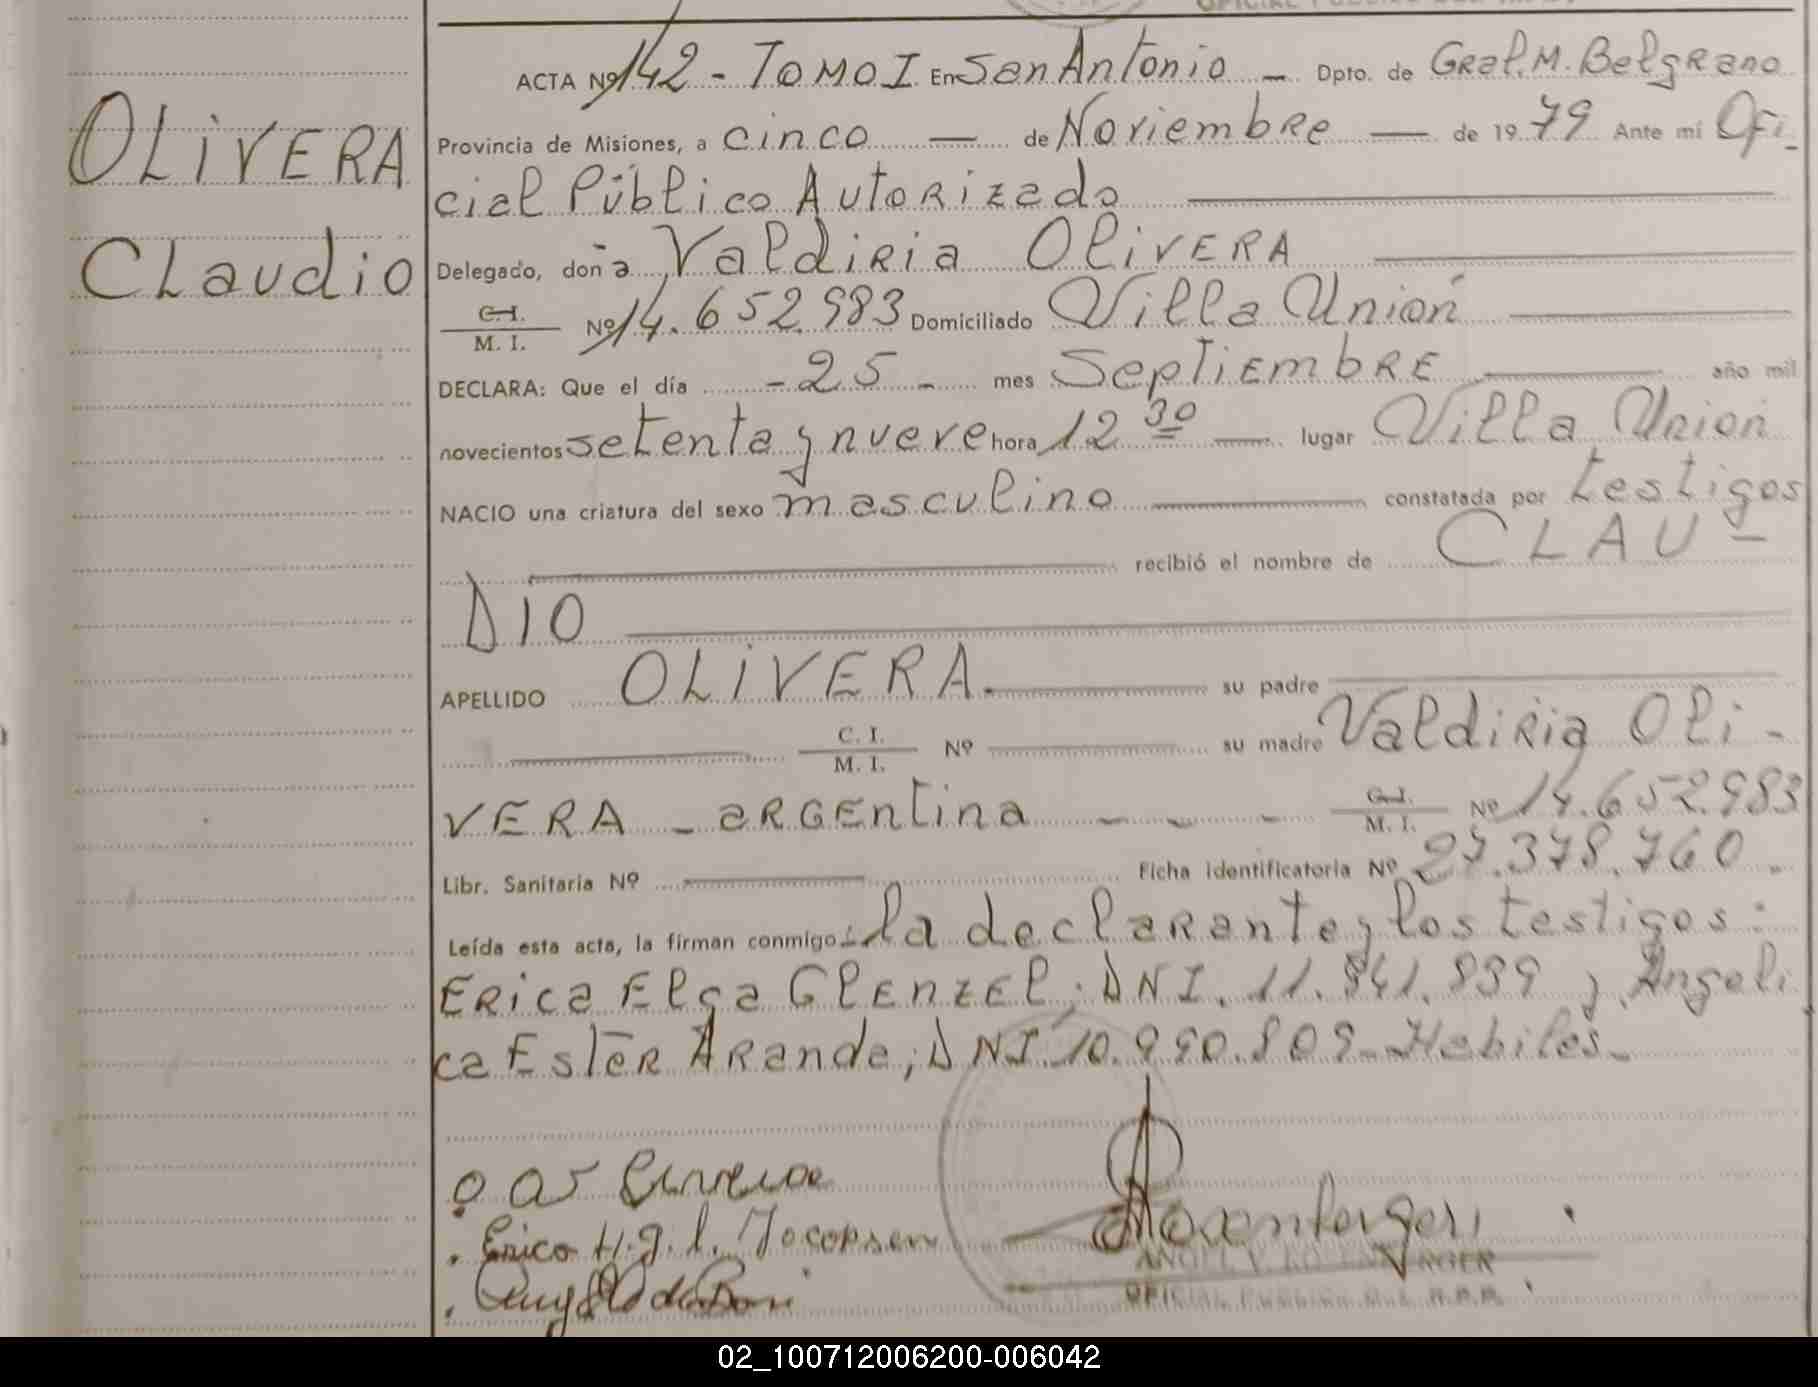 OLIVERA
Claudio
ACTA Nº 142 - TOMO I En San Antonio - Dpto. de Gral. M. Belgrano
Provincia de Misiones, a cinco — de Noviembre — de 1979 Ante mí Ofi-
cial Público Autorizado
Delegado, doña Valdiria Olivera
C. I.
M. I. Nº 14.652.983 Domiciliado Villa Unión
DECLARA: Que el día - 25 - mes Septiembre año mil
novecientos setenta y nueve hora 12 30 — lugar Villa Unión
NACIO una criatura del sexo masculino constatada por testigos
recibió el nombre de CLAU-
DIO
APELLIDO OLIVERA. su padre
C. I.
M. I. Nº su madre Valdiria Oli-
VERA - argentina - - - C. I.
M. I. Nº 14.652.983
Libr. Sanitaria Nº Ficha identificatoria Nº 27.378.760.
Leída esta acta, la firman conmigo: la declarante y los testigos:
Erica Elga Glenzel; DNI. 11.841.839 y Angeli
ca Ester Aranda; DNI. 10.990.809 - Habiles.-
02_100712006200-006042